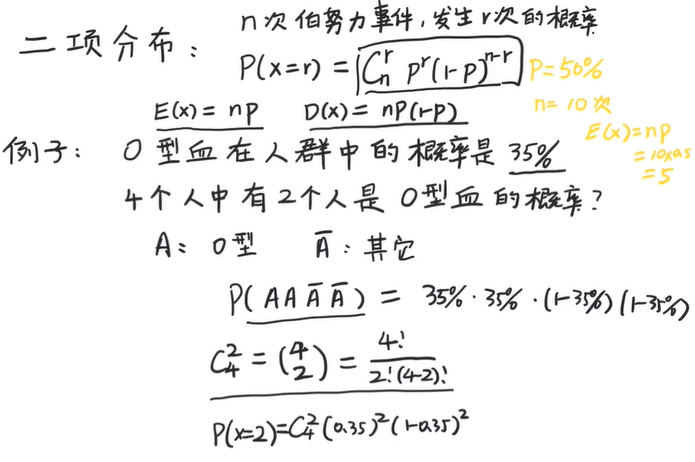 二项分布：
n次伯努力事件，发生r次的概率
P(x=r) = C_n^r p^r(1-p)^{n-r}
P=50%
n=10次
E(x)=np
=10x0.5
=5
E(x)=np D(x)=np(1-p)
例子：O型血在人群中的概率是35%
4个人中有2个人是O型血的概率？
A：O型 Ā：其它
P(AAĀĀ) = 35%·35%·(1-35%)(1-35%)
C_4^2 = (4 2) = 4!/2!(4-2)!
P(x=2)=C_4^2(0.35)^2(1-0.35)^2